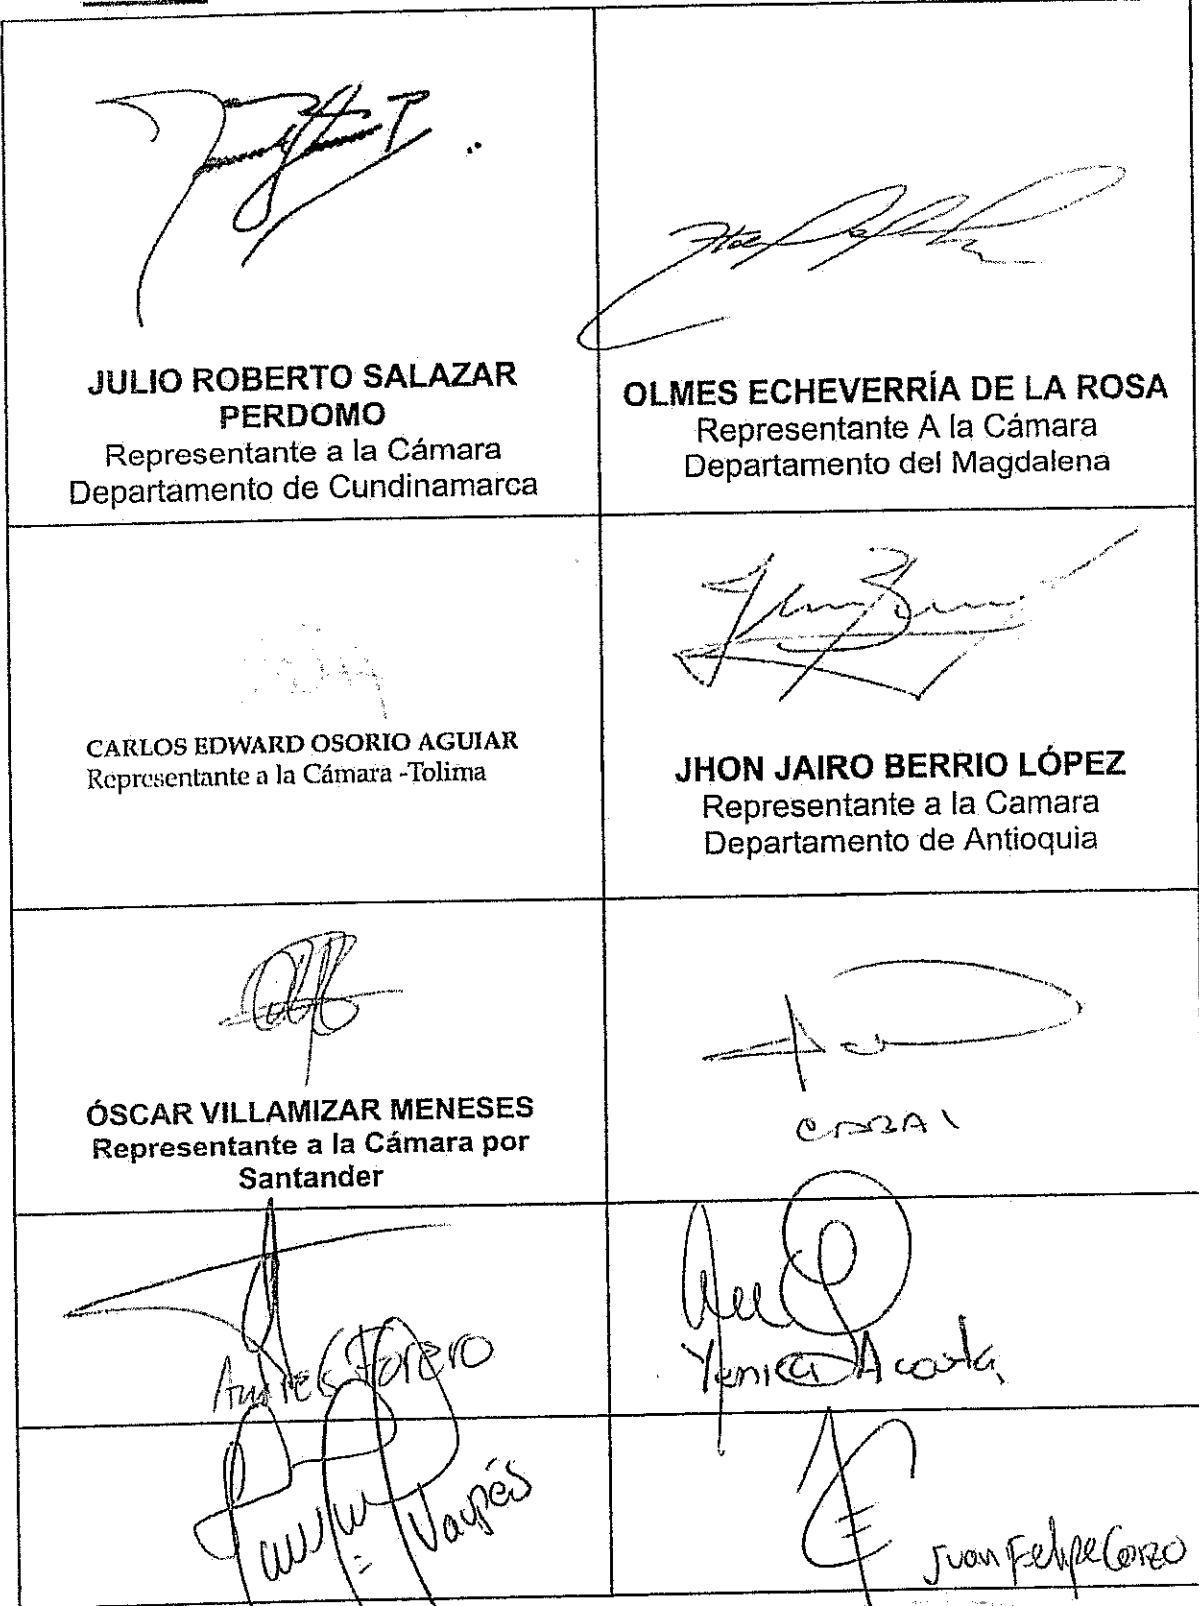 JULIO ROBERTO SALAZAR
PERDOMO
Representante a la Cámara
Departamento de Cundinamarca
OLMES ECHEVERRÍA DE LA ROSA
Representante A la Cámara
Departamento del Magdalena
CARLOS EDWARD OSORIO AGUIAR
Representante a la Cámara -Tolima
JHON JAIRO BERRIO LÓPEZ
Representante a la Camara
Departamento de Antioquia
ÓSCAR VILLAMIZAR MENESES
Representante a la Cámara por
Santander
Andrés Forero
Yenica Acosta
Vaupés
Juan Felipe Corzo